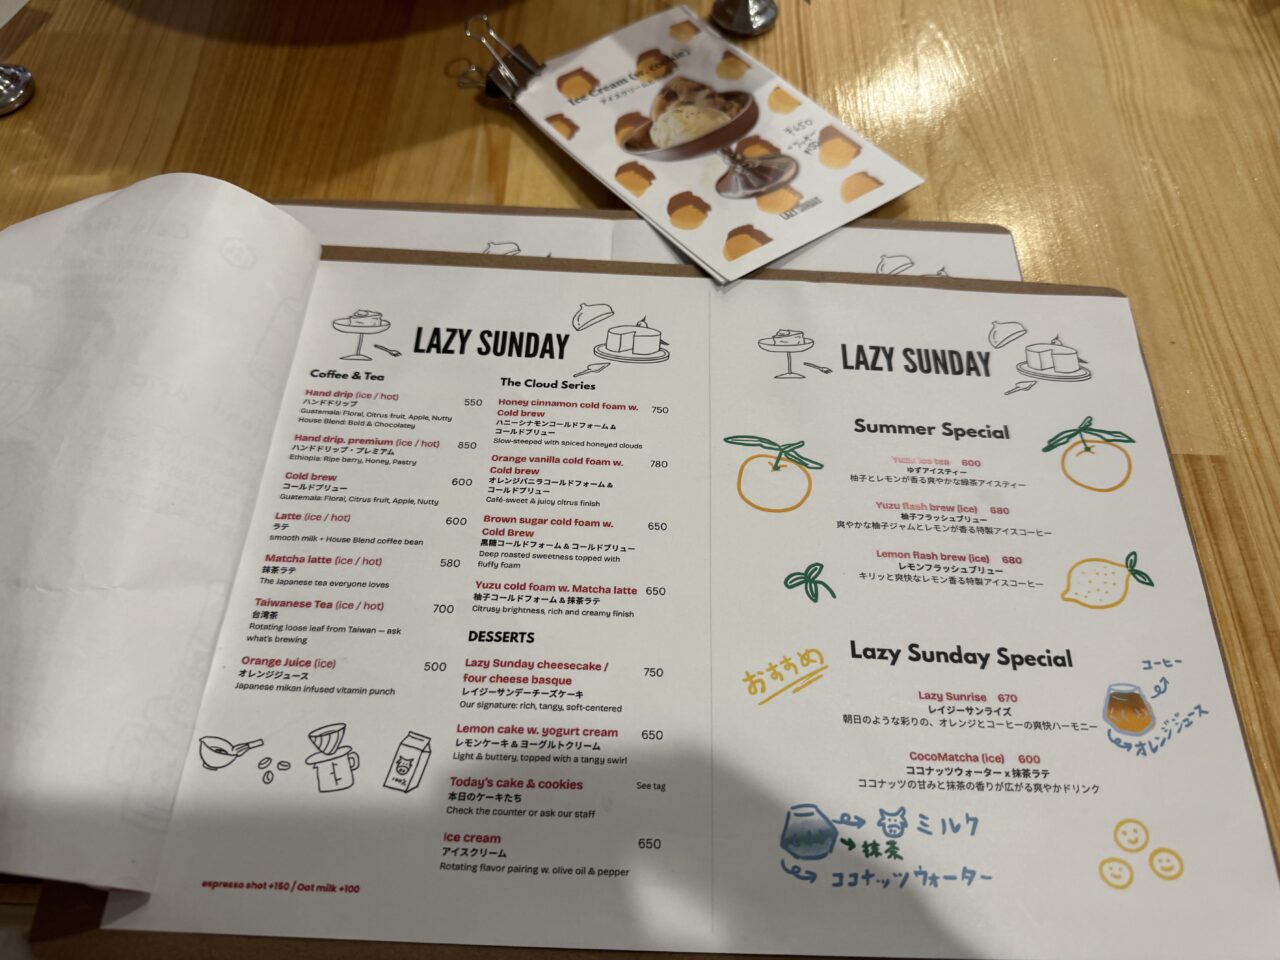 Ice Cream (w. cookie)
¥650
LAZY SUNDAY
LAZY SUNDAY
Coffee & Tea
Hand drip (ice / hot) 550
ハンドドリップ
Guatemala: Floral, Citrus fruit, Apple, Nutty
House Blend: Bold & Chocolatey
Hand drip. premium (ice / hot) 850
ハンドドリップ・プレミアム
Ethiopia: Ripe berry, Honey, Pastry
Cold brew 600
コールドブリュー
Guatemala: Floral, Citrus fruit, Apple, Nutty
Latte (ice / hot) 600
ラテ
smooth milk + House Blend coffee bean
Matcha latte (ice / hot) 580
抹茶ラテ
The Japanese tea everyone loves
Taiwanese Tea (ice / hot) 700
台湾茶
Rotating loose leaf from Taiwan — ask
what's brewing
Orange Juice (ice) 500
オレンジジュース
Japanese mikan infused vitamin punch
espresso shot +150 / Oat milk +100
The Cloud Series
Honey cinnamon cold foam w. 750
Cold brew
ハニーシナモンコールドフォーム &
コールドブリュー
Slow-steeped with spiced honeyed clouds
Orange vanilla cold foam w. 780
Cold brew
オレンジバニラコールドフォーム &
コールドブリュー
Café-sweet & juicy citrus finish
Brown sugar cold foam w. 650
Cold Brew
黒糖コールドフォーム & コールドブリュー
Deep roasted sweetness topped with
fluffy foam
Yuzu cold foam w. Matcha latte 650
柚子コールドフォーム & 抹茶ラテ
Citrusy brightness, rich and creamy finish
DESSERTS
Lazy Sunday cheesecake / 750
four cheese basque
レイジーサンデーチーズケーキ
Our signature: rich, tangy, soft-centered
Lemon cake w. yogurt cream 650
レモンケーキ & ヨーグルトクリーム
Light & buttery, topped with a tangy swirl
Today's cake & cookies See tag
本日のケーキたち
Check the counter or ask our staff
Ice cream 650
アイスクリーム
Rotating flavor pairing w. olive oil & pepper
LAZY SUNDAY
Summer Special
Yuzu ice tea 600
ゆずアイスティー
柚子とレモンが香る爽やかな緑茶アイスティー
Yuzu flash brew (ice) 680
柚子フラッシュブリュー
爽やかな柚子ジャムとレモンが香る特製アイスコーヒー
Lemon flash brew (ice) 680
レモンフラッシュブリュー
キリッと爽快なレモン香る特製アイスコーヒー
Lazy Sunday Special
おすすめ
Lazy Sunrise 670
レイジーサンライズ
朝日のような彩りの、オレンジとコーヒーの爽快ハーモニー
コーヒー
オレンジジュース
CocoMatcha (ice) 600
ココナッツウォーター x 抹茶ラテ
ココナッツの甘みと抹茶の香りが広がる爽やかドリンク
ミルク
抹茶
ココナッツウォーター